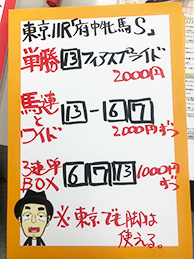 東京11R「府中牝馬S」
単勝 13 フィアスプライド
2000円
馬連とワイド 13-6 7
2000円ずつ
3連単BOX 6 7 13 1000円ずつ
※東京でも脚は使える。